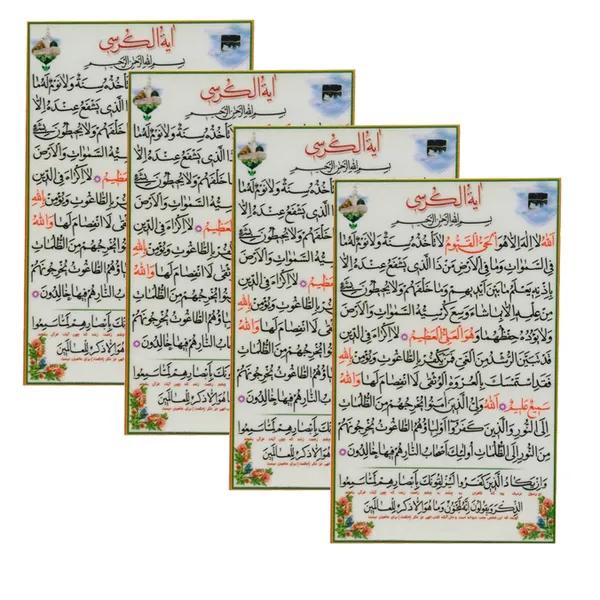 آية الكرسي
بِسْمِ اللهِ الرَّحْمٰنِ الرَّحيمِ
اَللهُ لا اِلهَ اِلاّ هُوَ الْحَيُّ الْقَيُّومُ لا تَأْخُذُهُ سِنَةٌ وَلا نَوْمٌ لَهُ ما
فِي السَّمواتِ وَما فِي الْاَرْضِ مَنْ ذَا الَّذي يَشْفَعُ عِنْدَهُ اِلاّ
بِاِذْنِهِ يَعْلَمُ ما بَيْنَ اَيْديهِمْ وَما خَلْفَهُمْ وَلا يُحيطُونَ بِشَيْءٍ
مِنْ عِلْمِهِ اِلاّ بِما شاءَ وَسِعَ كُرْسِيُّهُ السَّمواتِ وَالْاَرْضَ
وَلا يَؤُدُهُ حِفْظُهُما وَهُوَ الْعَلِيُّ الْعَظيمُ لا اِكْراهَ فِي الدّينِ
قَدْ تَبَيَّنَ الرُّشْدُ مِنَ الْغَيِّ فَمَنْ يَكْفُرْ بِالطّاغُوتِ وَيُؤْمِنْ بِاللهِ
فَقَدِ اسْتَمْسَكَ بِالْعُرْوَةِ الْوُثْقى لَا انْفِصامَ لَها وَاللهُ
سَميعٌ عَليمٌ اَللهُ وَلِيُّ الَّذينَ امَنُوا يُخْرِجُهُمْ مِنَ الظُّلُماتِ
اِلَى النُّورِ وَالَّذينَ كَفَرُوا اَوْلِياؤُهُمُ الطّاغُوتُ يُخْرِجُونَهُمْ
مِنَ النُّورِ اِلَى الظُّلُماتِ اُولئِكَ اَصْحابُ النّارِ هُمْ فيها خالِدُونَ
وَاِنْ يَكادُ الَّذينَ كَفَرُوا لَيُزْلِقُونَكَ بِاَبْصارِهِمْ لَمّا سَمِعُوا
الذِّكْرَ وَيَقُولُونَ اِنَّهُ لَمَجْنُونٌ وَما هُوَ اِلاّ ذِكْرٌ لِلْعالَمينَ